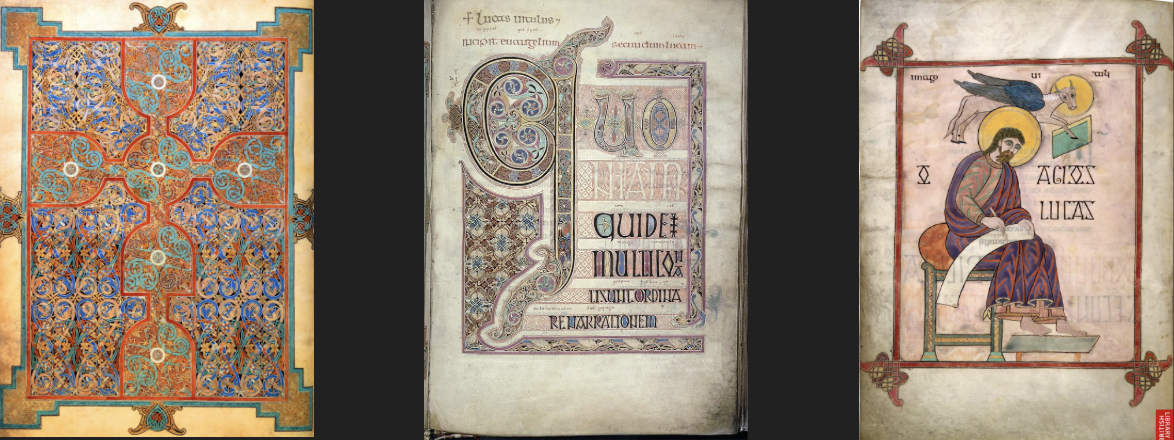 + lucas uitulus
incipit euangelium secundum lucam
QUO
NIAM
QUIDEM
MULTI CONA
TI SUNT ORDINA
RE NARRATIONEM
imago uituli
O AGIOS
LUCAS
BRITISH
LIBRARY